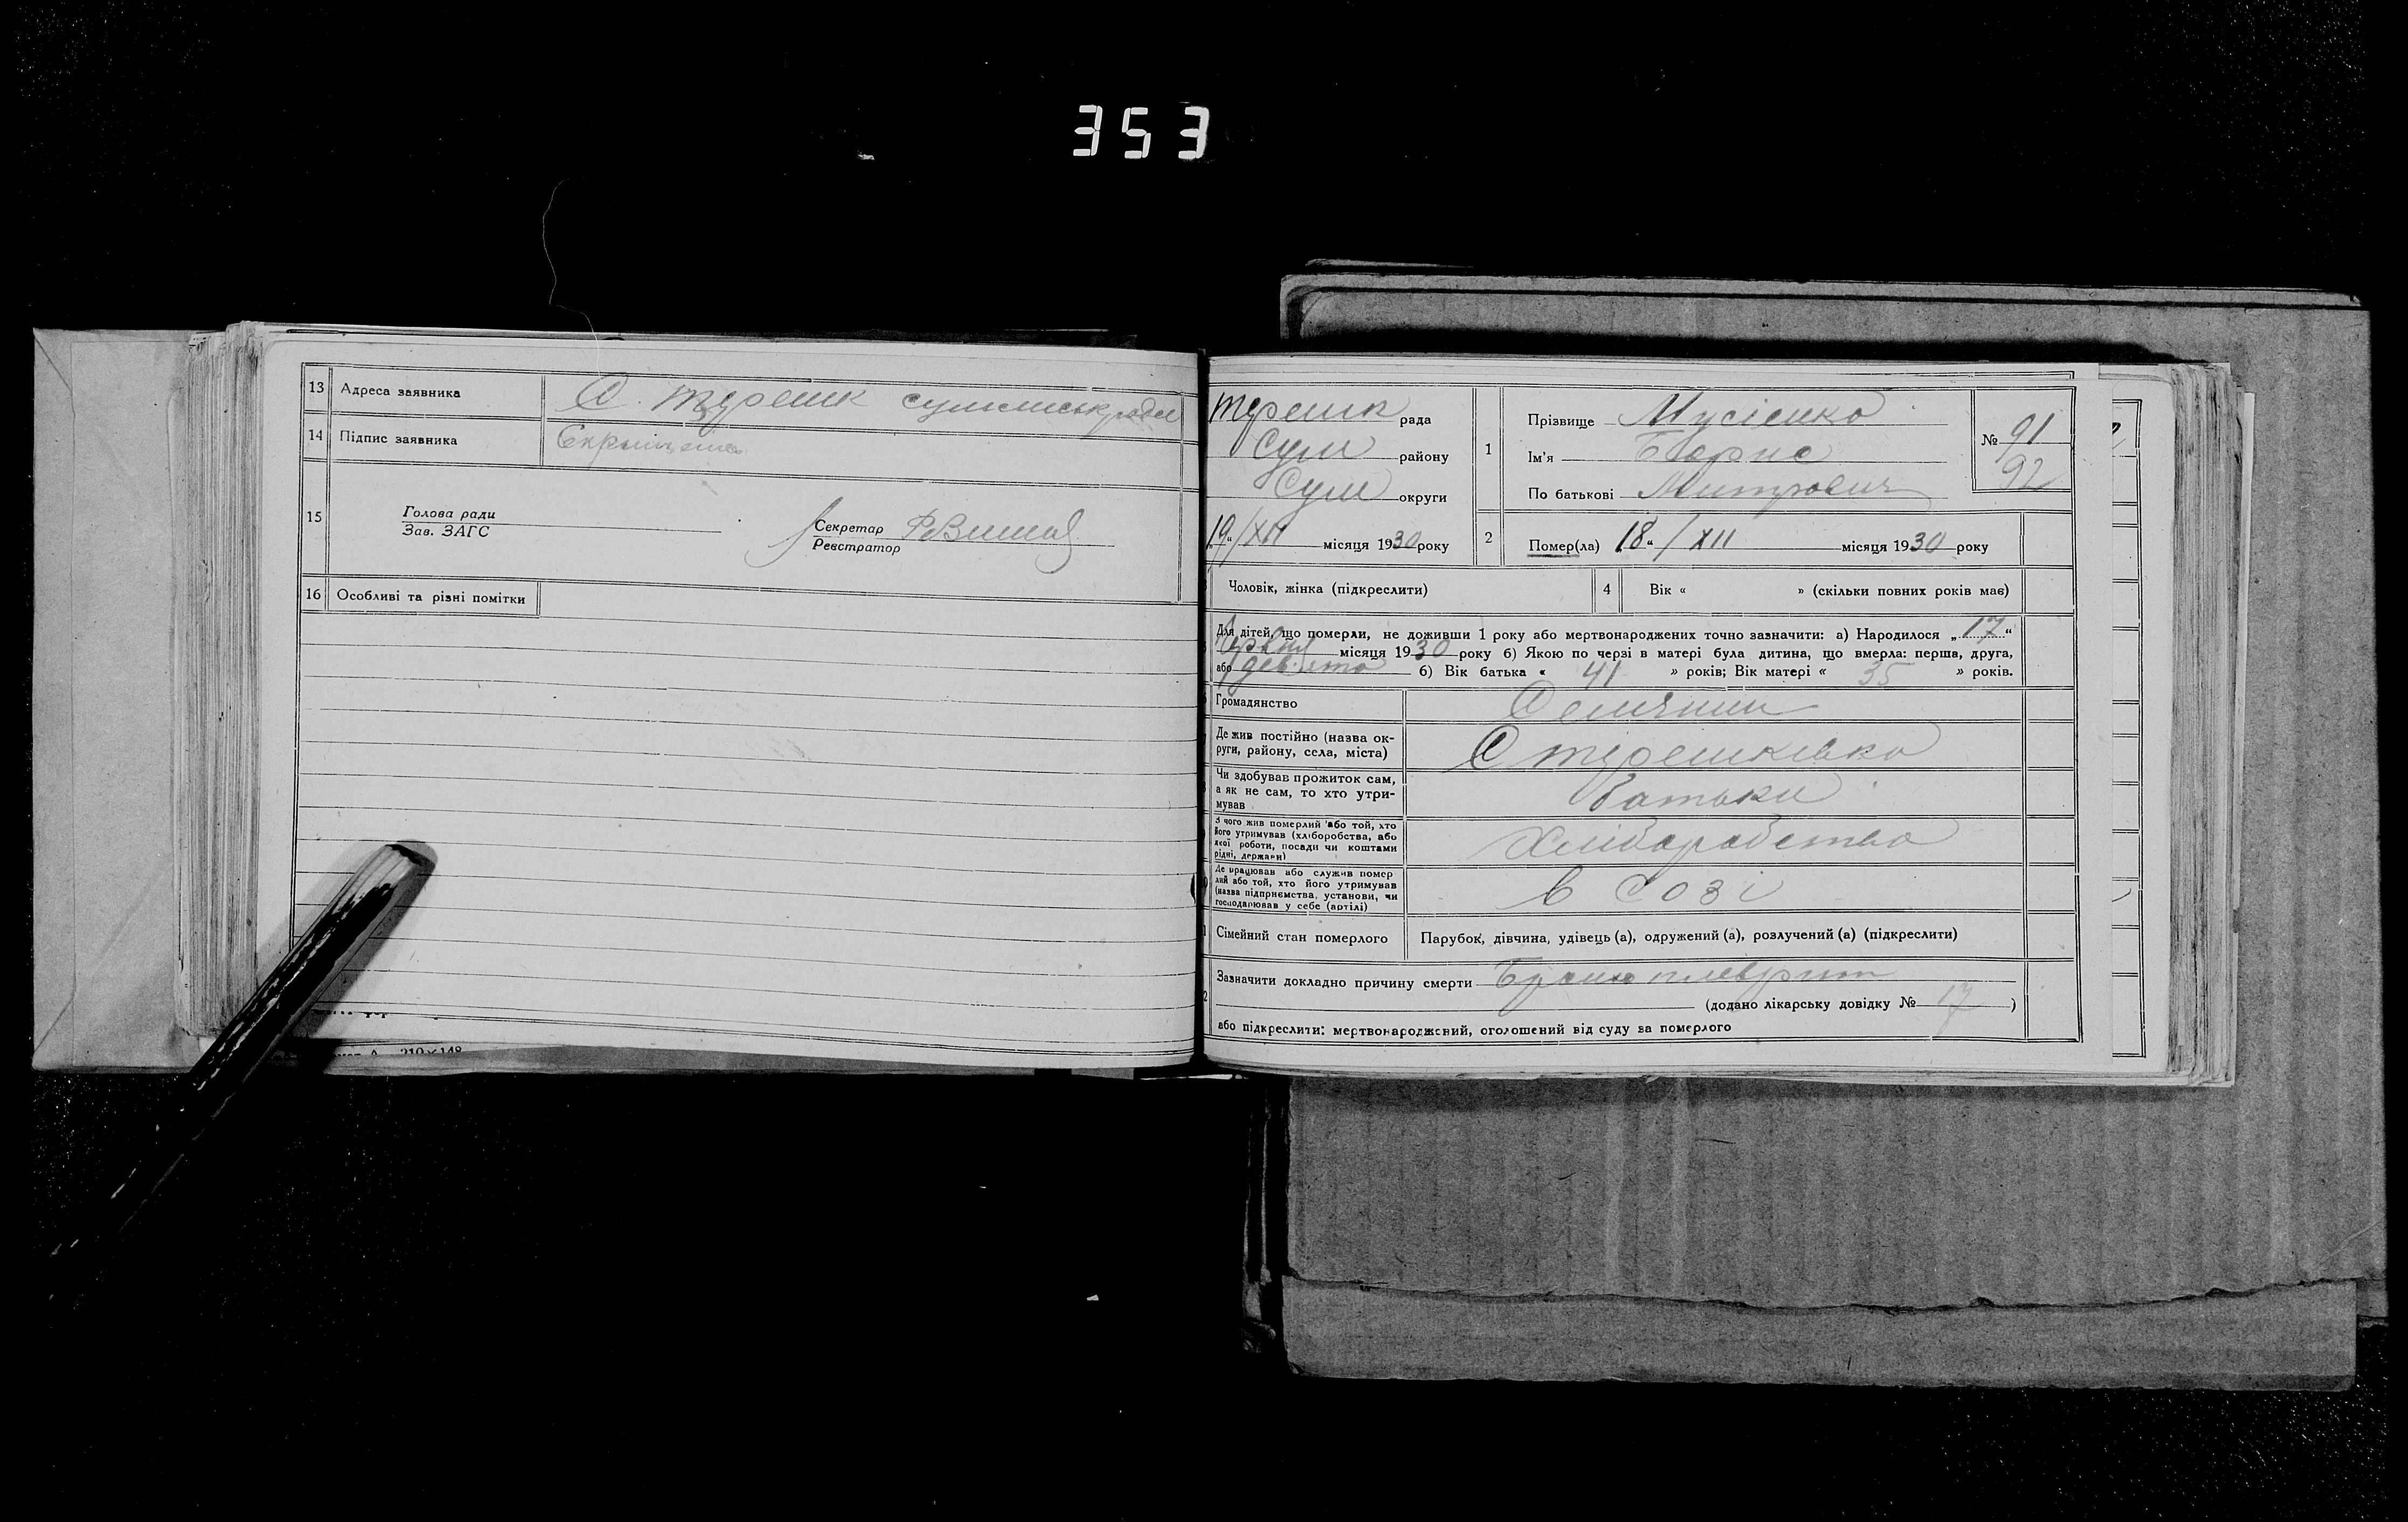 353
13 Адреса заявника С. терешк сумсиськради
14 Підпис заявника
15 Голова ради
Зав. ЗАГС
Секретар
Реєстратор
16 Особливі та різні помітки
210×148
терешк рада
Сум району
Сум округи
19 "/XII місяця 1930 року
1 Прізвище Мусієнко
Ім'я Борис
По батькові Митрович
№ 91
92
2 Помер(ла) 18 "/XII місяця 1930 року
Чоловік, жінка (підкреслити)
4 Вік « » (скільки повних років має)
Для дітей, що померли, не доживши 1 року або мертвонароджених точно зазначити: а) Народилося „17“
червня місяця 1930 року б) Якою по черзі в матері була дитина, що вмерла: перша, друга,
або дев'ята б) Вік батька « 41 » років; Вік матері « 35 » років.
Громадянство Селянин
Де жив постійно (назва ок-
руги, району, села, міста) С терешківка
Чи здобував прожиток сам,
а як не сам, то хто утри-
мував батьки
З чого жив померлий або той, хто
його утримував (хліборобства, або
якої роботи, посади чи коштами
рідні, держави) Хліборобство
Де працював або служив помер
лий або той, хто його утримував
(назва підприємства, установи, чи
господарював у себе (артілі) в созі
Сімейний стан померлого Парубок, дівчина, удівець (а), одружений (а), розлучений (а) (підкреслити)
Зазначити докладно причину смерти Бронхо плеврит
(додано лікарську довідку № 17 )
або підкреслити: мертвонароджений, оголошений від суду за померлого